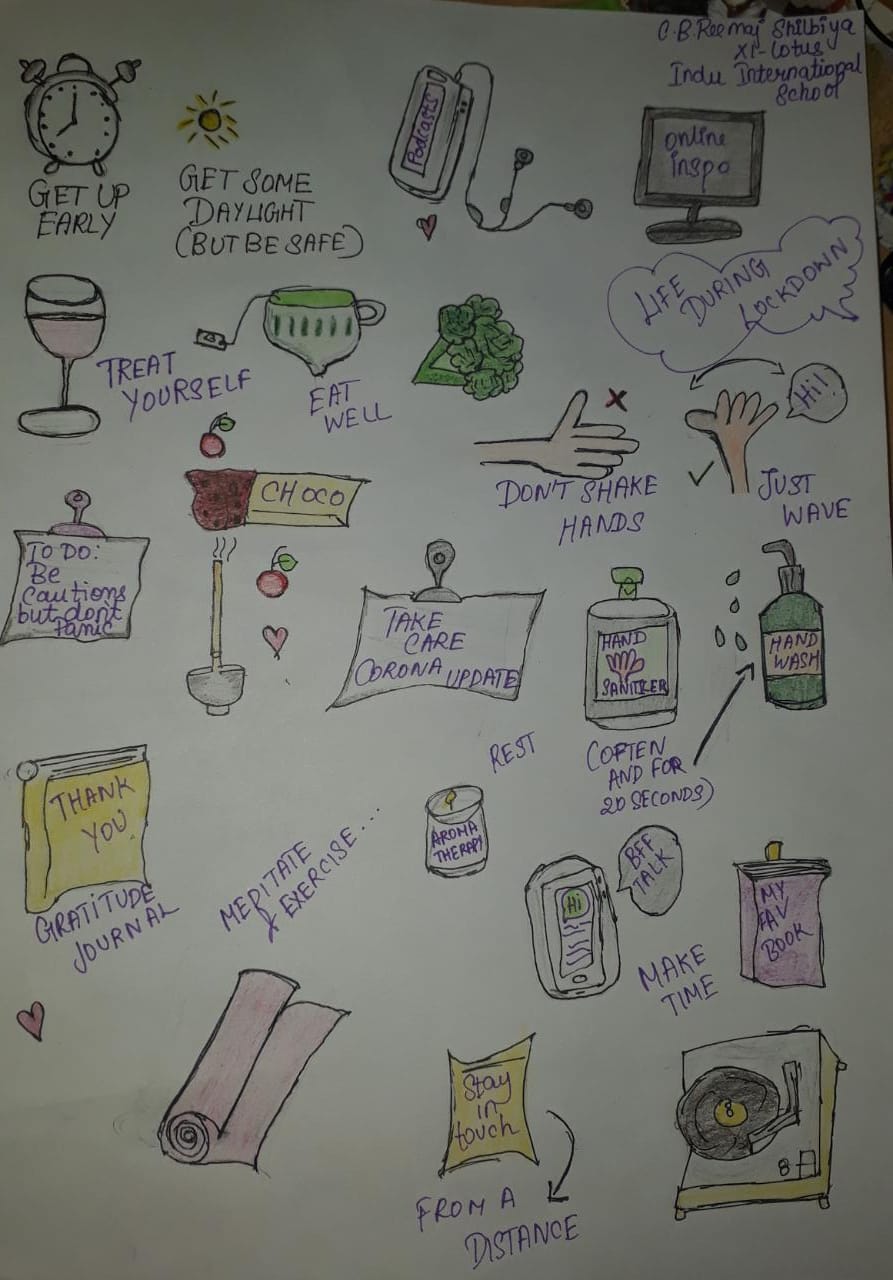 C.B.Reemaj Shilbiya
XI-Lotus
Indu International
School
GET UP
EARLY
GET SOME
DAYLIGHT
(BUT BE SAFE)
Podcasts
online
inspo
LIFE
DURING
LOCKDOWN
TREAT
YOURSELF
EAT
WELL
Hi!
DON'T SHAKE
HANDS
JUST
WAVE
CHOCO
TO DO:
Be
cautions
but don't
Panic
TAKE
CARE
CORONA UPDATE
HAND
SANITIZER
HAND
WASH
(OFTEN
AND FOR
20 SECONDS)
REST
THANK
YOU
GRATITUDE
JOURNAL
MEDITATE
& EXERCISE...
AROMA
THERAPY
BFF
TALK
Hi
MAKE
TIME
MY
FAV
BOOK
Stay
in
touch
FROM A
DISTANCE
8
8